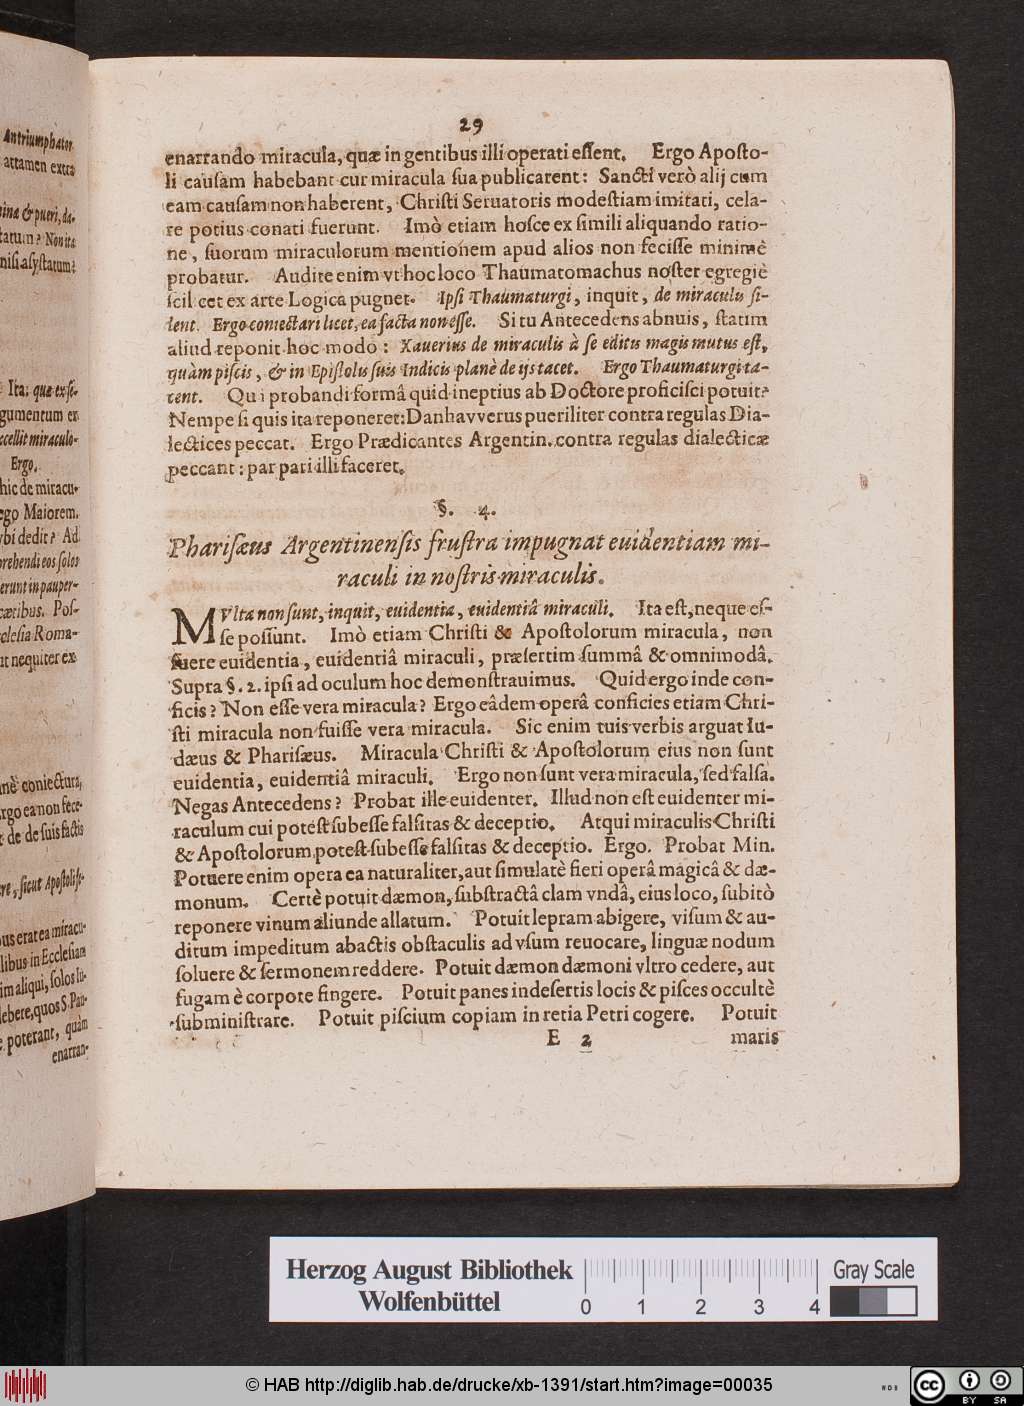 Antriumphator
attamen extra
& pueri, da-
tatum? Non ita
nisi asystatum?
Ita: quæ ex si-
gumentum ex
Ergo.
hic de miracu-
ego Maiorem.
dedit? Ad
prehendi eos solos
erunt in pauper-
Pos-
clesia Roma-
ut nequiter ex
coniectura,
rgo ea non fece-
de de suis factis
sicut Apostoli se-
us erat ea miracu-
libus in Ecclesiam
im aliqui, solos Iu-
debere, quos S. Pau-
poterant, quàm
enarran-
29
enarrando miracula, quæ in gentibus illi operati essent. Ergo Aposto-
li causam habebant cur miracula sua publicarent: Sancti verò alij cum
eam causam non haberent, Christi Seruatoris modestiam imitati, cela-
re potius conati fuerunt. Imò etiam hosce ex simili aliquando ratio-
ne, suorum miraculorum mentionem apud alios non fecisse minimè
probatur. Audite enim vt hoc loco Thaumatomachus noster egregiè
scil cet ex arte Logica pugnet. Ipsi Thaumaturgi, inquit, de miraculis si-
lent. Ergo coniectari licet, ea facta non esse. Si tu Antecedens abnuis, statim
aliud reponit hoc modo: Xauerius de miraculis à se editis magis mutus est,
quàm piscis, & in Epistolis suis Indicis planè de ijs tacet. Ergo Thaumaturgi ta-
cent. Qui probandi formâ quid ineptius ab Doctore proficisci potuit?
Nempe si quis ita reponeret: Danhavverus pueriliter contra regulas Dia-
lectices peccat. Ergo Prædicantes Argentin. contra regulas dialecticæ
peccant: par pari illi faceret.
§. 4.
Pharisæus Argentinensis frustra impugnat euidentiam mi-
raculi in nostris miraculis.
MVlta non sunt, inquit, euidentia, euidentiâ miraculi. Ita est, neque es-
se possunt. Imò etiam Christi & Apostolorum miracula, non
fuere euidentia, euidentiâ miraculi, præsertim summâ & omnimodâ.
Supra §. 2. ipsi ad oculum hoc demonstrauimus. Quid ergo inde con-
ficis? Non esse vera miracula? Ergo eâdem operâ conficies etiam Chri-
sti miracula non fuisse vera miracula. Sic enim tuis verbis arguat Iu-
dæus & Pharisæus. Miracula Christi & Apostolorum eius non sunt
euidentia, euidentiâ miraculi. Ergo non sunt vera miracula, sed falsa.
Negas Antecedens? Probat ille euidenter. Illud non est euidenter mi-
raculum cui potest subesse falsitas & deceptio. Atqui miraculis Christi
& Apostolorum potest subesse falsitas & deceptio. Ergo. Probat Min.
Potuere enim opera ea naturaliter, aut simulatè fieri operâ magicâ & dæ-
monum. Certè potuit dæmon, substractâ clam vndâ, eius loco, subitò
reponere vinum aliunde allatum. Potuit lepram abigere, visum & au-
ditum impeditum abactis obstaculis ad vsum reuocare, linguæ nodum
soluere & sermonem reddere. Potuit dæmon dæmoni vltro cedere, aut
fugam è corpore fingere. Potuit panes in desertis locis & pisces occultè
subministrare. Potuit piscium copiam in retia Petri cogere. Potuit
E 2 maris
Herzog August Bibliothek
Wolfenbüttel
0 1 2 3 4
Gray Scale
© HAB http://diglib.hab.de/drucke/xb-1391/start.htm?image=00035
WDB
cc BY SA